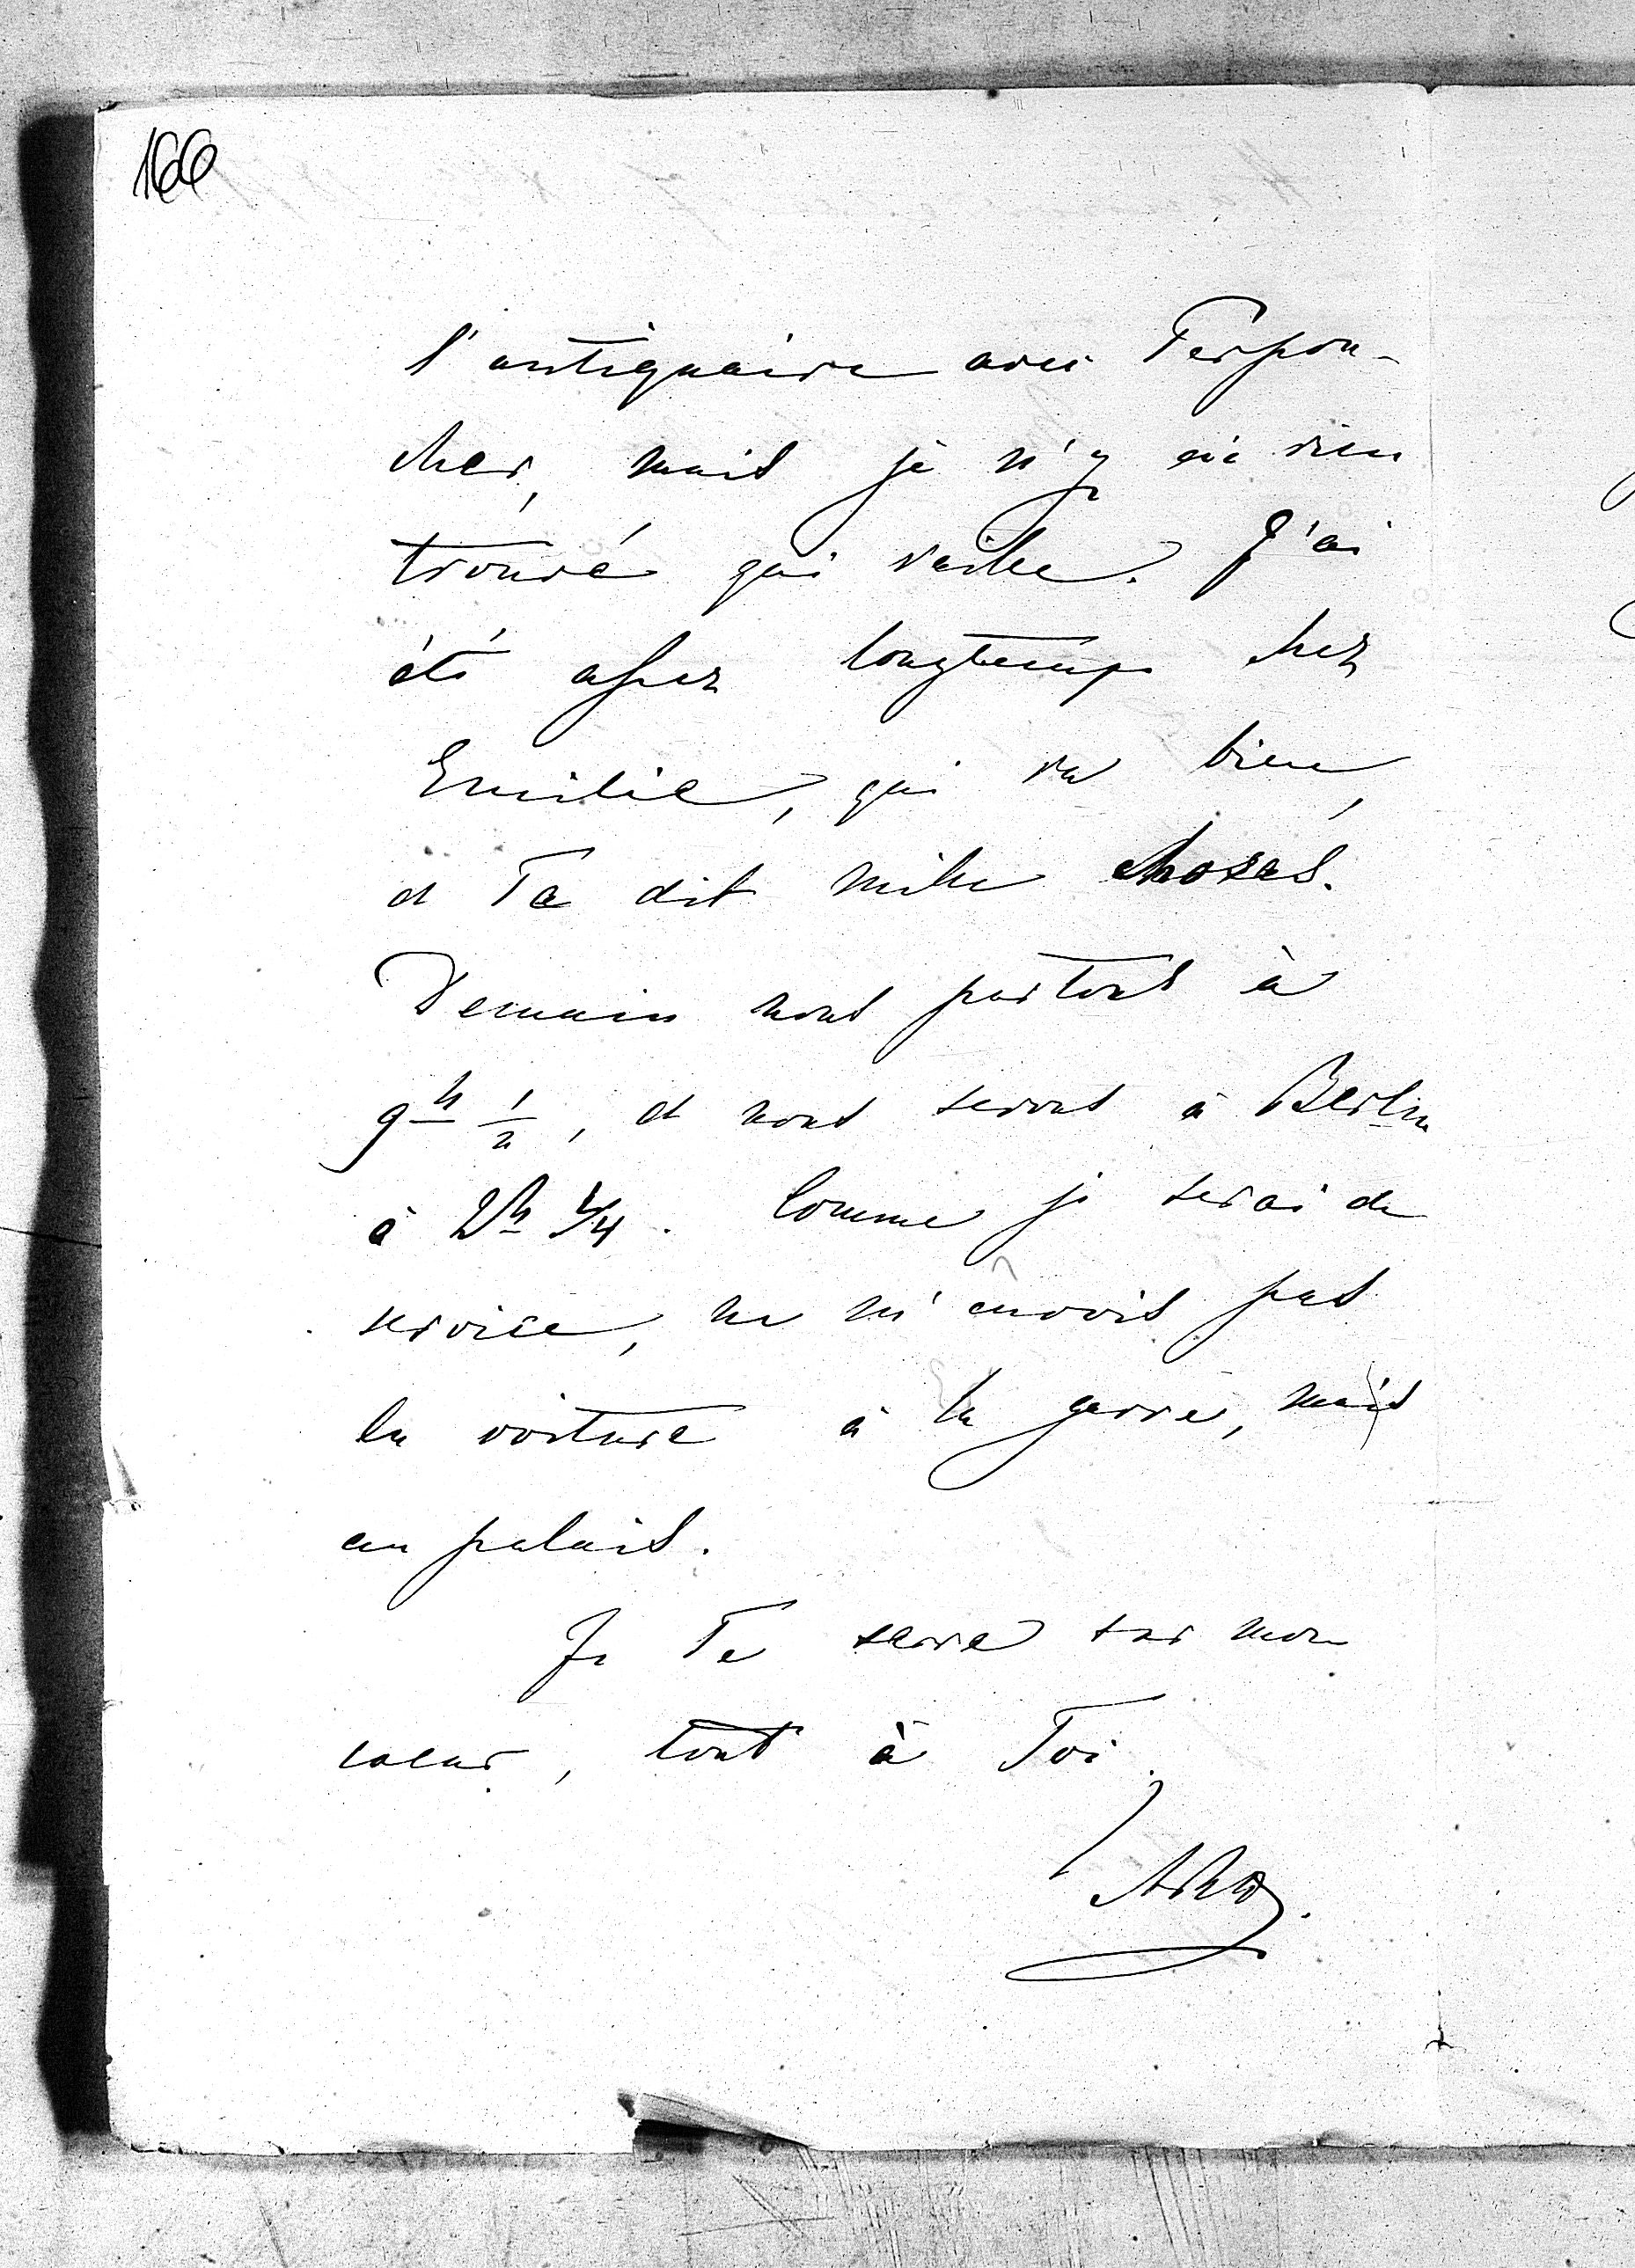 166
l'antiquaire avec Perpon-
cher, mais je n'y ai rien
trouvé qui vaille. J'ai
été assez longtemps chez
Emilie, qui va bien,
et Te dit mille choses.
Demain nous partons à
9h 1/2, et nous serons à Berlin
à 2h 1/4. Comme je serai de
service, ne m'envois pas
la voiture à la garre, mais
au palais.
Je Te serre sur mon
coeur, tout à Toi.